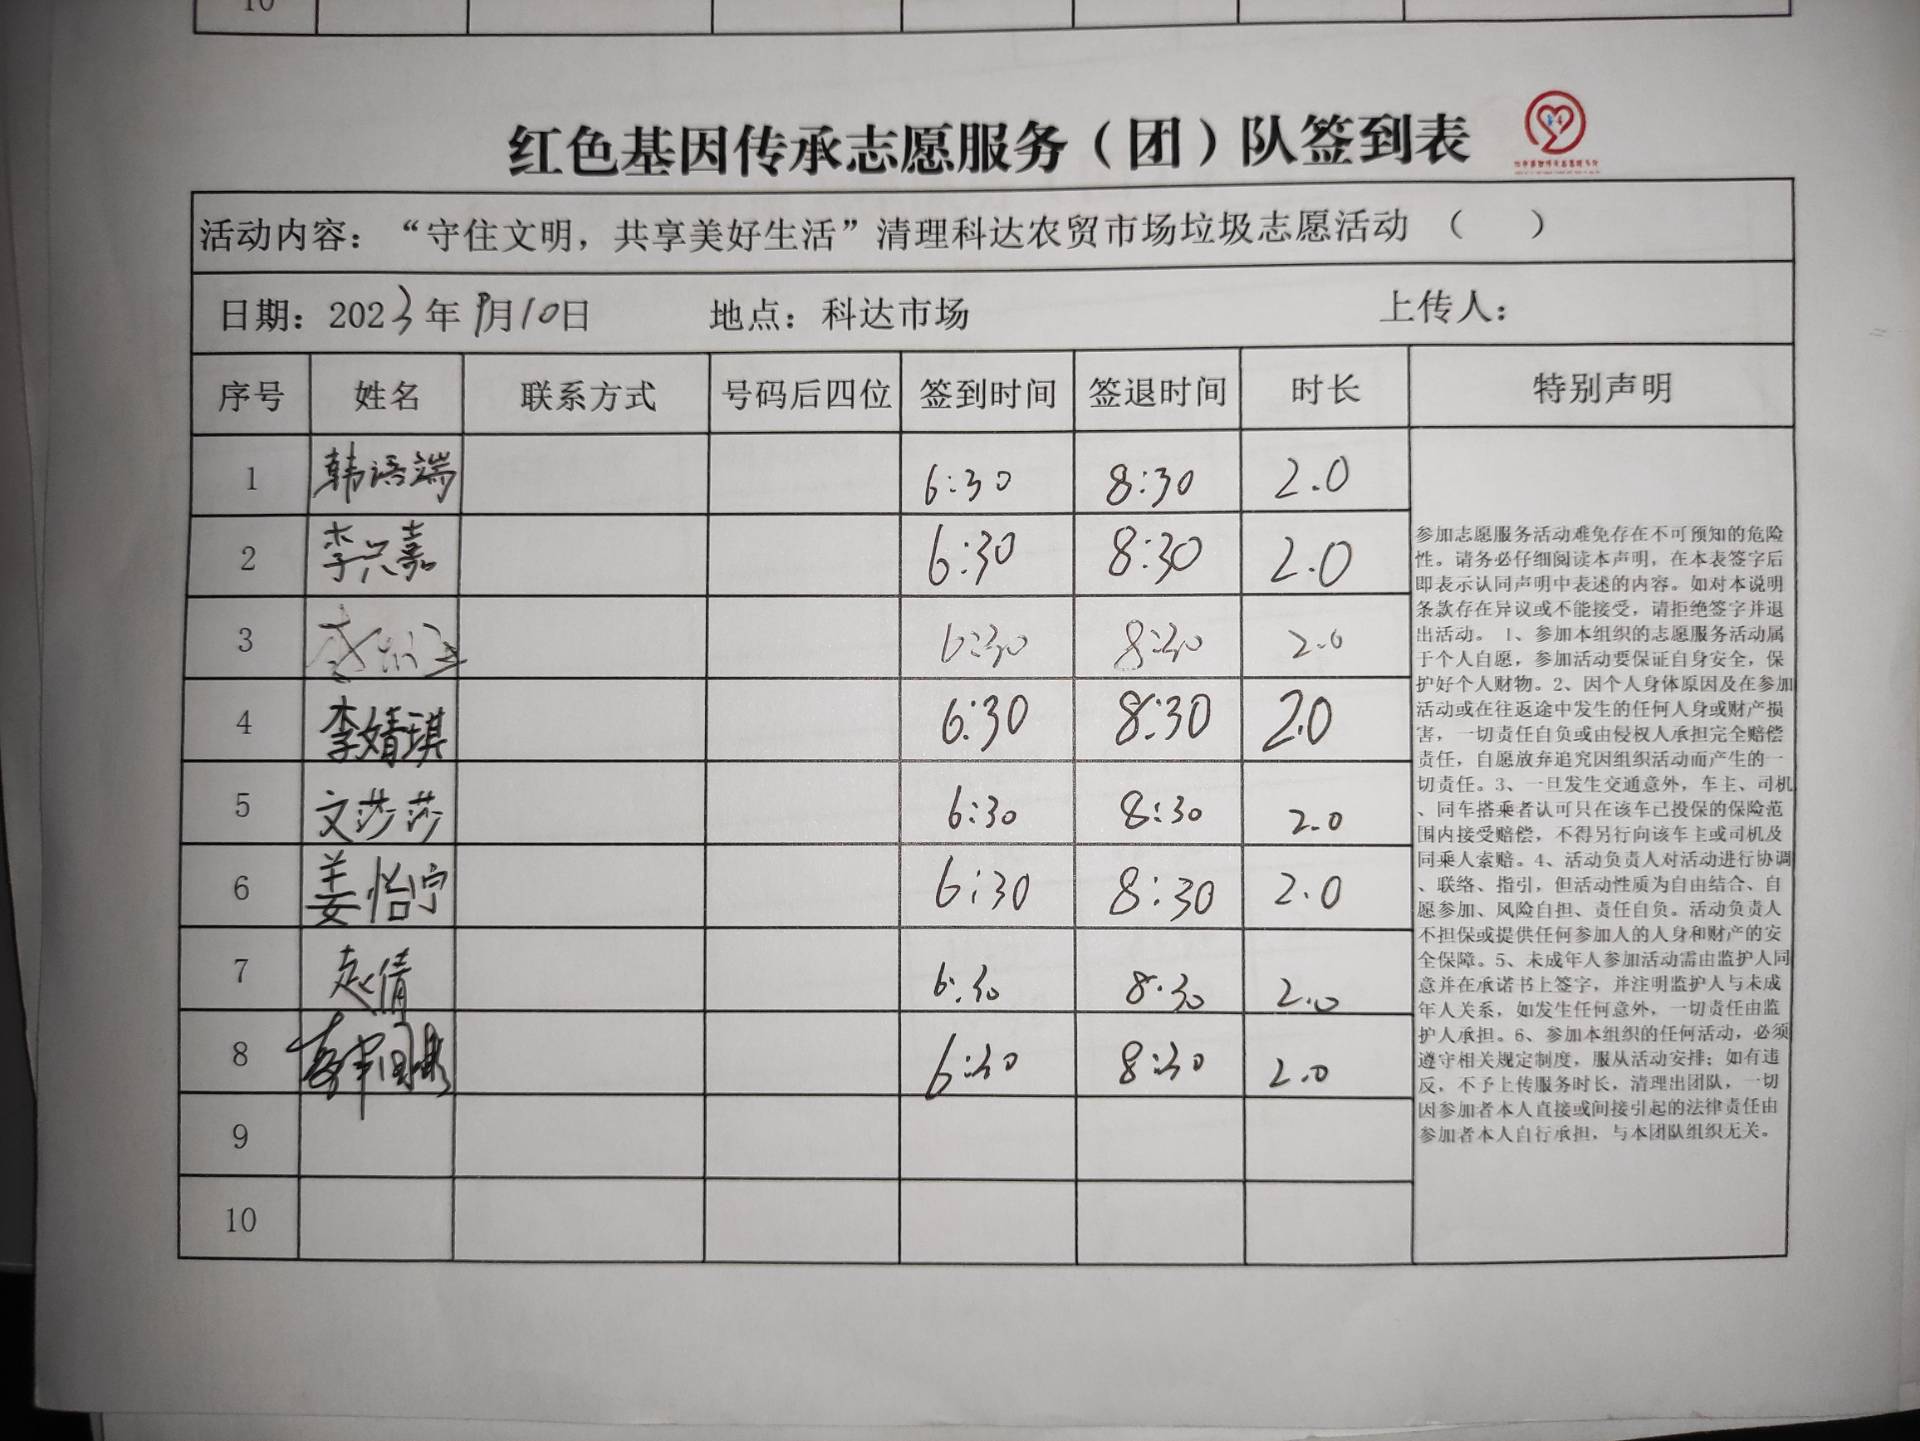 10
红色基因传承志愿服务（团）队签到表
活动内容：“守住文明，共享美好生活”清理科达农贸市场垃圾志愿活动（ ）
日期：2023年9月10日 地点：科达市场 上传人：
序号 姓名 联系方式 号码后四位 签到时间 签退时间 时长 特别声明
1 韩语端 6:30 8:30 2.0
2 李兴嘉 6:30 8:30 2.0
3 6:30 8:30 2.0
4 李婧琪 6:30 8:30 2.0
5 文莎莎 6:30 8:30 2.0
6 姜怡宁 6:30 8:30 2.0
7 赵倩 6:30 8:30 2.0
8 6:30 8:30 2.0
9
10
参加志愿服务活动难免存在不可预知的危险
性。请务必仔细阅读本声明，在本表签字后
即表示认同声明中表述的内容。如对本说明
条款存在异议或不能接受，请拒绝签字并退
出活动。 1、参加本组织的志愿服务活动属
于个人自愿，参加活动要保证自身安全，保
护好个人财物。2、因个人身体原因及在参加
活动或在往返途中发生的任何人身或财产损
害，一切责任自负或由侵权人承担完全赔偿
责任，自愿放弃追究因组织活动而产生的一
切责任。3、一旦发生交通意外，车主、司机
、同车搭乘者认可只在该车已投保的保险范
围内接受赔偿，不得另行向该车主或司机及
同乘人索赔。4、活动负责人对活动进行协调
、联络、指引，但活动性质为自由结合、自
愿参加、风险自担、责任自负。活动负责人
不担保或提供任何参加人的人身和财产的安
全保障。5、未成年人参加活动需由监护人同
意并在承诺书上签字，并注明监护人与未成
年人关系，如发生任何意外，一切责任由监
护人承担。6、参加本组织的任何活动，必须
遵守相关规定制度，服从活动安排；如有违
反，不予上传服务时长，清理出团队，一切
因参加者本人直接或间接引起的法律责任由
参加者本人自行承担，与本团队组织无关。